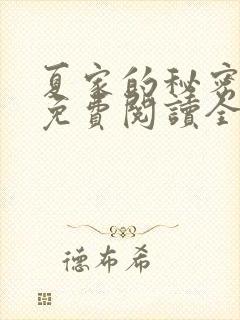 夏家的秘密
免費閱讀全
德布希